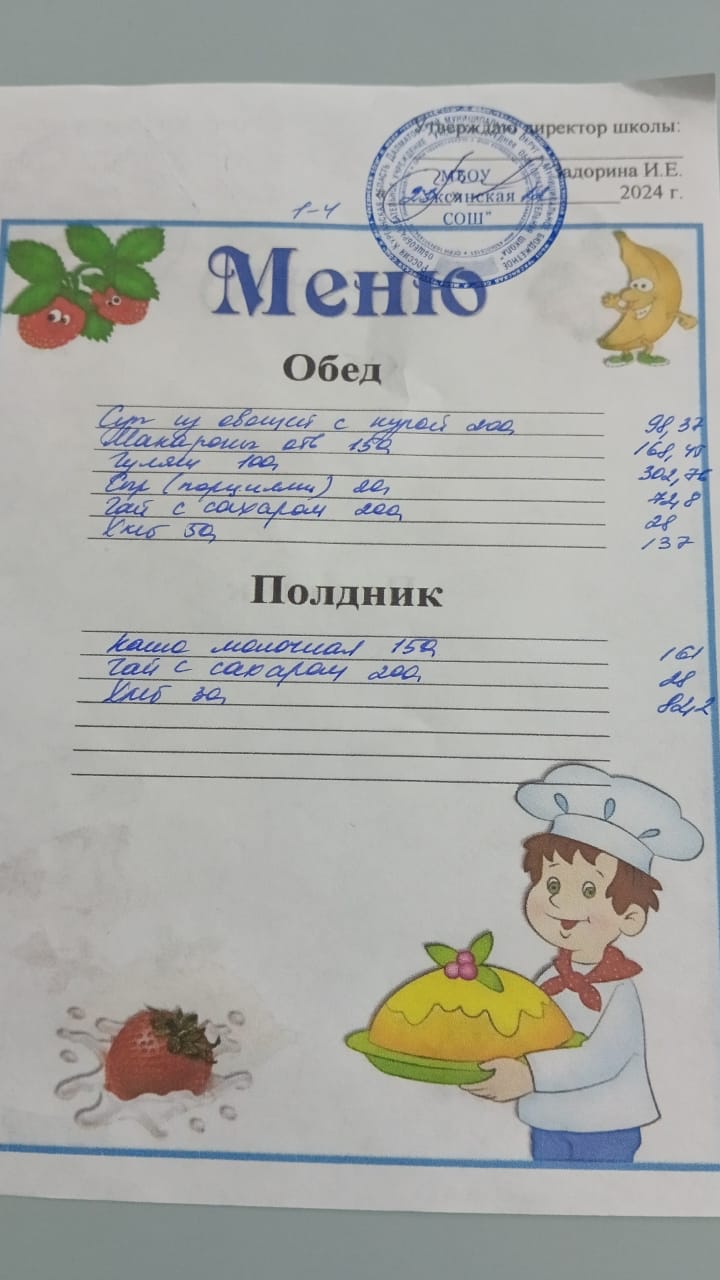 Утверждаю директор школы:
Задорина И.Е.
МБОУ
"Уксянская
2024 г.
СОШ"
1-4
Меню
Обед
Суп из овощей с курой 200 98,37
Макароны отв 150 168,45
Гуляш 100 302,76
Сыр (порциями) 20 72,8
Чай с сахаром 200 28
Хлеб 50 137
Полдник
Каша молочная 150 161
Чай с сахаром 200 28
Хлеб 30 82,2